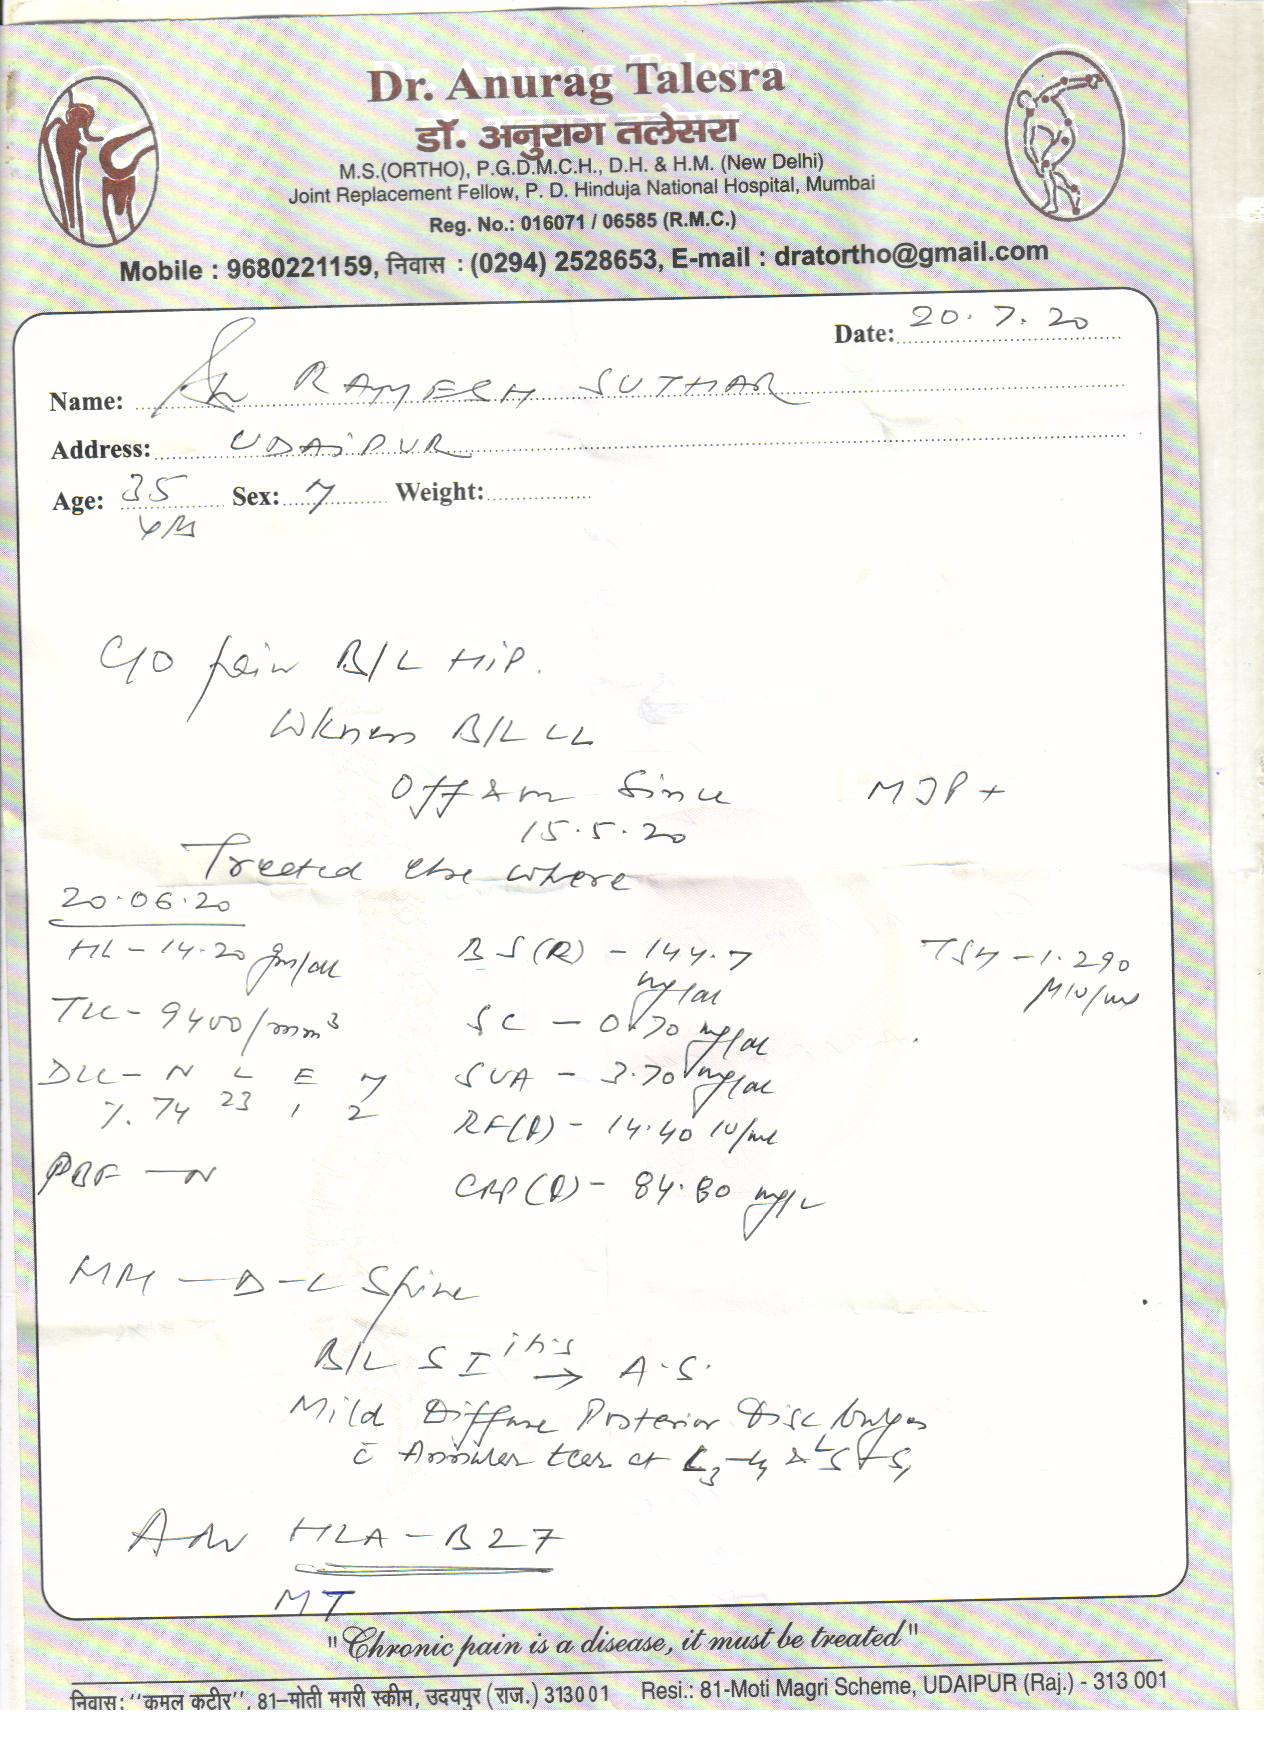 Dr. Anurag Talesra
डॉ. अनुराग तलेसरा
M.S.(ORTHO), P.G.D.M.C.H., D.H. & H.M. (New Delhi)
Joint Replacement Fellow, P. D. Hinduja National Hospital, Mumbai
Reg. No.: 016071 / 06585 (R.M.C.)
Mobile : 9680221159, निवास : (0294) 2528653, E-mail : dratortho@gmail.com
Date: 20.7.20
Name: RAMESH SUTHAR
Address: UDAIPUR
Age: 35 Sex: M Weight:
yrs
C/O pain B/L HIP.
Wkness B/L LL
Off & on Since MJP +
15.5.20
Treated else where
20.06.20
Hb - 14.20 gm/dl BS(R) - 144.7 TSH - 1.290
mg/dl μIU/ml
TLC - 9400/mm3 SC - 0.70 mg/dl
DLC - N L E M SUA - 3.70 mg/dl
%. 74 23 1 2 RF(Q) - 14.40 IU/ml
PBF - N
CRP(Q) - 84.80 mg/L
MRI - D-L Spine
B/L SI itis → A.S.
Mild Diffuse Posterior Disc bulges
c̄ Annular tear at L3-4 & L5-S1
Adv HLA-B27
MT
"Chronic pain is a disease, it must be treated"
निवास: "कमल कटीर", 81–मोती मगरी स्कीम, उदयपुर (राज.) 313001 Resi.: 81-Moti Magri Scheme, UDAIPUR (Raj.) - 313 001